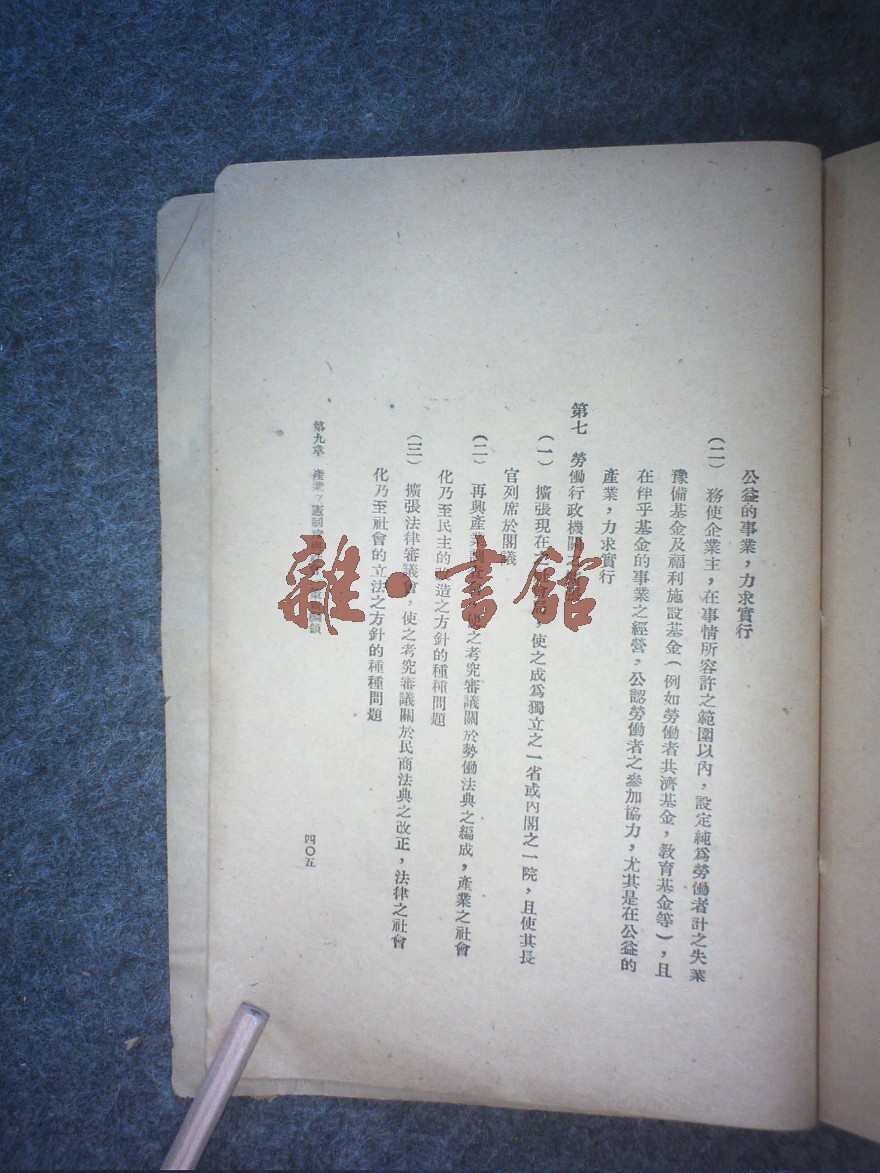 公益的事業，力求實行
（二）　務使企業主，在事情所容許之範圍以內，設定純爲勞働者計之失業
豫備基金及福利施設基金（例如勞働者共濟基金，教育基金等），且
在伴乎基金的事業之經營，公認勞働者之參加協力，尤其是在公益的
產業，力求實行
第七　勞働行政機關
（一）　擴張現在　使之成爲獨立之一省或內閣之一院，且使其長
官列席於閣議
（二）　再興產業　使之考究審議關於勞働法典之編成，產業之社會
化乃至民主的改造之方針的種種問題
（三）　擴張法律審議會，使之考究審議關於民商法典之改正，法律之社會
化乃至社會的立法之方針的種種問題
第九章　產業
四〇五
雜·書館